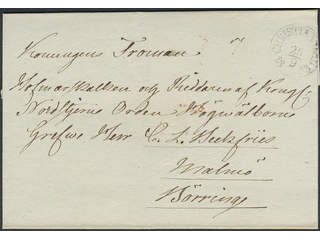 Konungens Troman
Hofmarskalken och Riddaren af Kongl.
Nordstjerne Orden Högwälborne
Grefwe Herr C. L. Beckfries
Malmö
Börringe